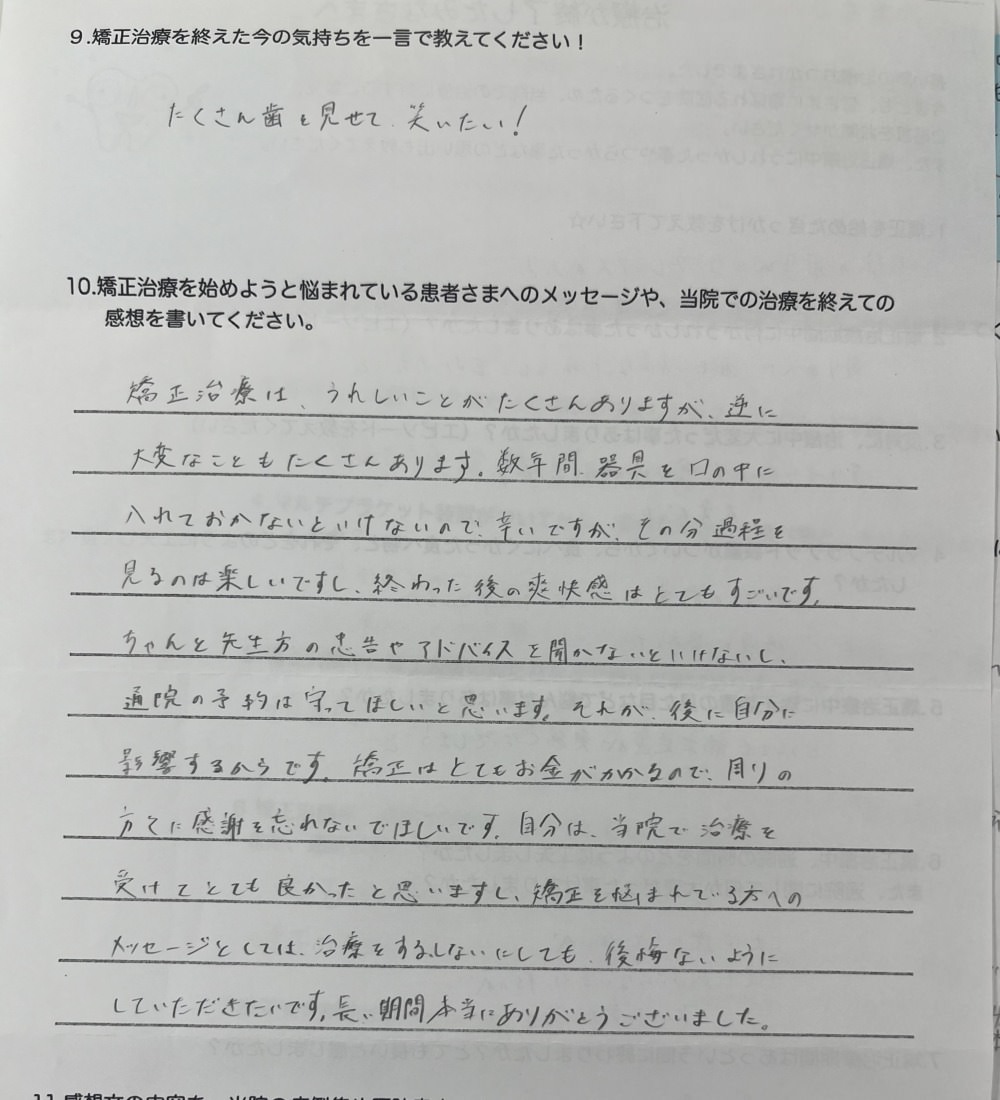 9.矯正治療を終えた今の気持ちを一言で教えてください！
たくさん歯を見せて、笑いたい！
10.矯正治療を始めようと悩まれている患者さまへのメッセージや、当院での治療を終えての
感想を書いてください。
矯正治療は、うれしいことがたくさんありますが、逆に
大変なこともたくさんあります。数年間、器具を口の中に
入れておかないといけないので、辛いですが、その分過程を
見るのは楽しいですし、終わった後の爽快感はとてもすごいです。
ちゃんと先生方の忠告やアドバイスを聞かないといけないし、
通院の予約は守ってほしいと思います。それが、後に自分に
影響するからです。矯正はとてもお金がかかるので、周りの
方々に感謝を忘れないでほしいです。自分は、当院で治療を
受けてとても良かったと思いますし、矯正を悩まれている方への
メッセージとしては、治療をする、しないにしても、後悔ないように
していただきたいです。長い期間本当にありがとうございました。